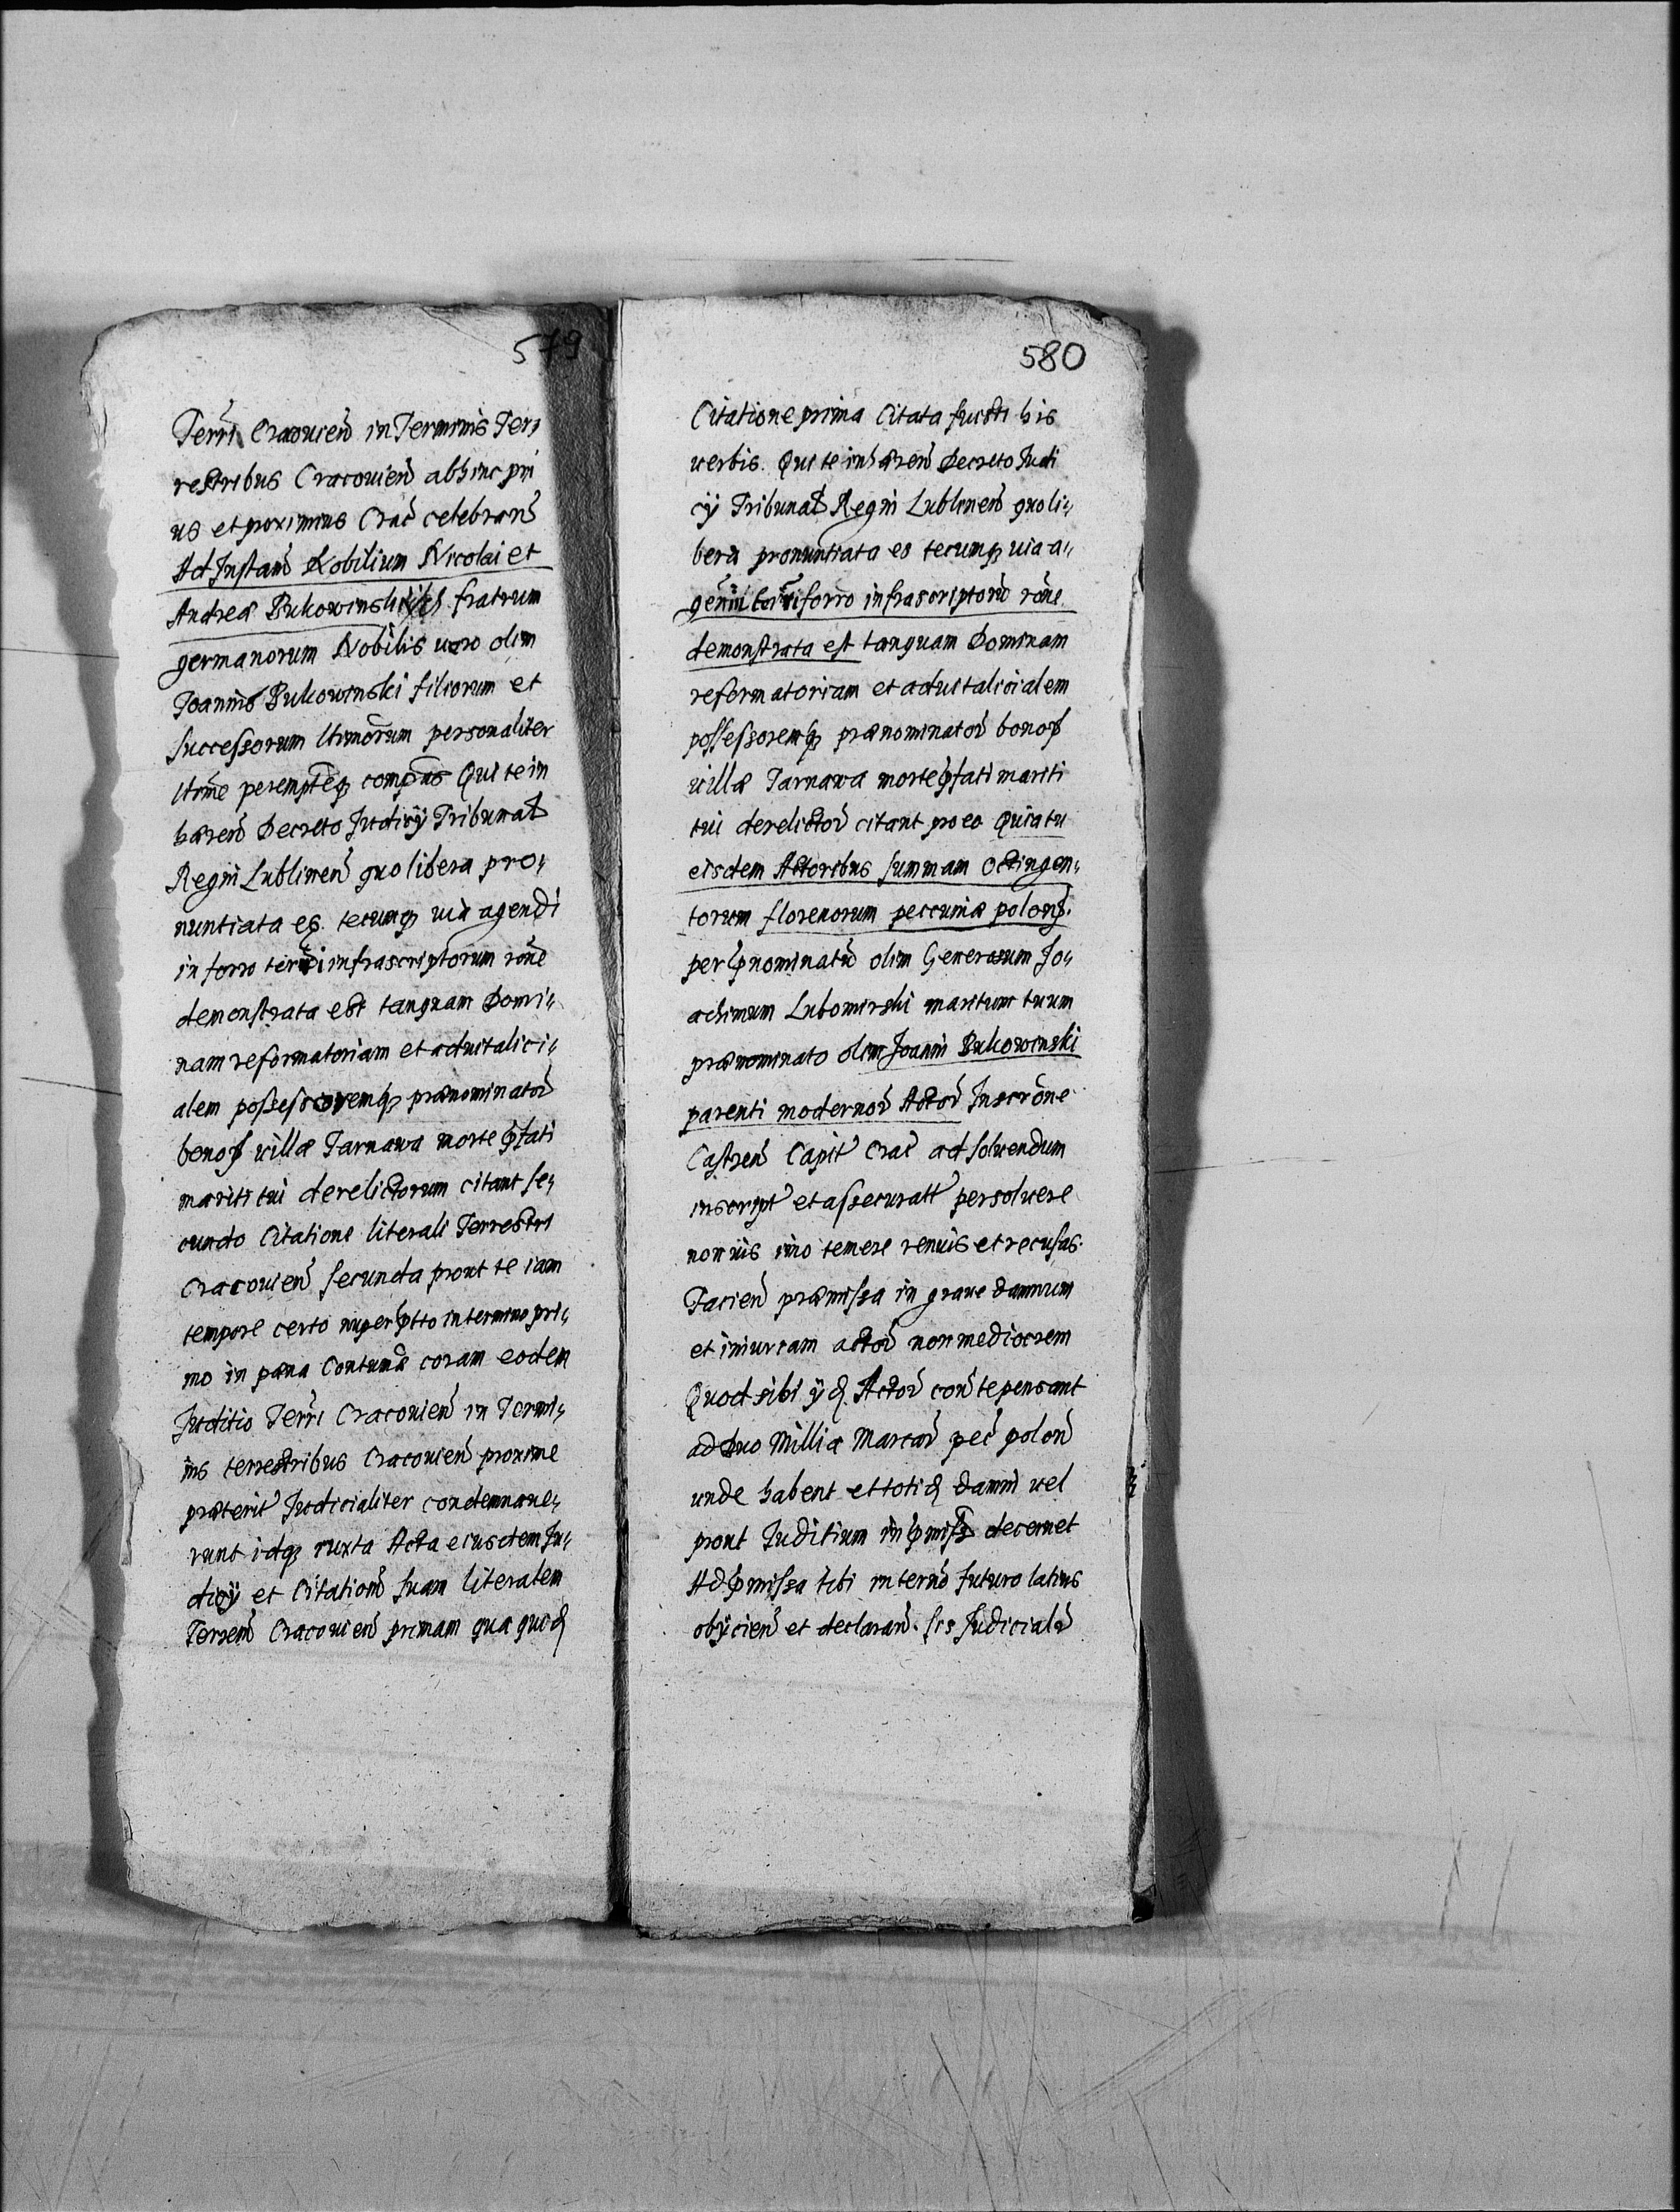 579
Terrī Cracouień in Terminis Ter,
restribus Cracouień abhinc pri
us et proximius Crac̃ celebrań
Ad Instań Nobilium Nicolai et
Andreæ Bukowinski fratrum
germanorum Nobilis uero olim
Joannis Bukowinski filiorum et
successorum ltimorum personaliter
ltime peremptēq compūs Qui te in
hæreń Decreto Judicÿ Tribunal
Regni Lublineń quo libera pro,,
nuntiata es. tecumq uia agendi
in forro terr̃i infrascriptorum rōne
demonstrata est tanquam Domi,,
nam reformatoriam et aduitalici,,
alem possessoremq prænominator̃
bonoꝝ uillæ Tarnawa morte p̃fati
mariti tui derelictorum citant se,,
cundo Citatione literali Terrestri
Cracouień secunda prout te iam
tempore certo nuper in termino pri,,
mo in pæna Contuma coram eodem
Juditio Terrī Cracouień in Termi,,
nis terrestribus Cracouień proxime
præterit̃ Judicialiter condemnaue,,
runt idq iuxta Acta eiusdem Ju,,
dicÿ et Citationẽ suam literalem
Terreñ Cracouień primam qua quidẽ
580
Citatione prima Citata fuisti his
uerbis. Qui te inhæreń Decreto Judi
cÿ Tribunal Regni Lublineń quo li,,
bera pronuntiata es tecumq uia a,,
gendi in forro infrascriptorũ rōne
demonstrata est tanquam Dominam
reformatoriam et aduitalicialem
possessoremq prænominator̃ bonoꝝ
uillæ Tarnawa morte p̃fati mariti
tui derelictor̃ citant pro eo Quia tu
eisdem Actoribus summam Octingen,,
torum florenorum peccuniæ polonꝭ.
per p̃nominatũ olim Generosum Jo,,
achimum Lubomirski maritum tuum
prænominato olim Joanni Bukowinski
parenti modernor̃ Actor̃ Inscrōne
Castreń Capit̃ Crac̃ ad soluendum
inscript̃ et assecuratt̃ persoluere
non uis imo temere renuis et recusas.
Facień præmissa in graue damnum
et iniuriam actor̃ non mediocrem
Quod sibi ÿd. Actor̃ coñ te pensant
ad Duo Millia Marcar̃ pec̃ poloñ
unde habent et totid damni uel
prout Juditium in p̃miss decernet
Ad p̃missa tibi in termĩo futuro latius
obÿcień et declarań. sis Judicialr̃